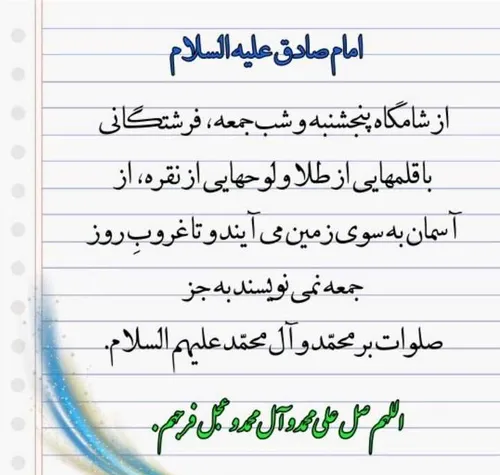 امام صادق علیه السلام
از شامگاه پنجشنبه و شب جمعه، فرشتگانی
با قلمهایی از طلا و لوحهایی از نقره، از
آسمان به سوی زمین می آیند و تا غروبِ روز
جمعه نمی نویسند به جز
صلوات بر محمّد و آل محمّد علیهم السلام.
اللهم صل علی محمد و آل محمد و عجل فرجهم.